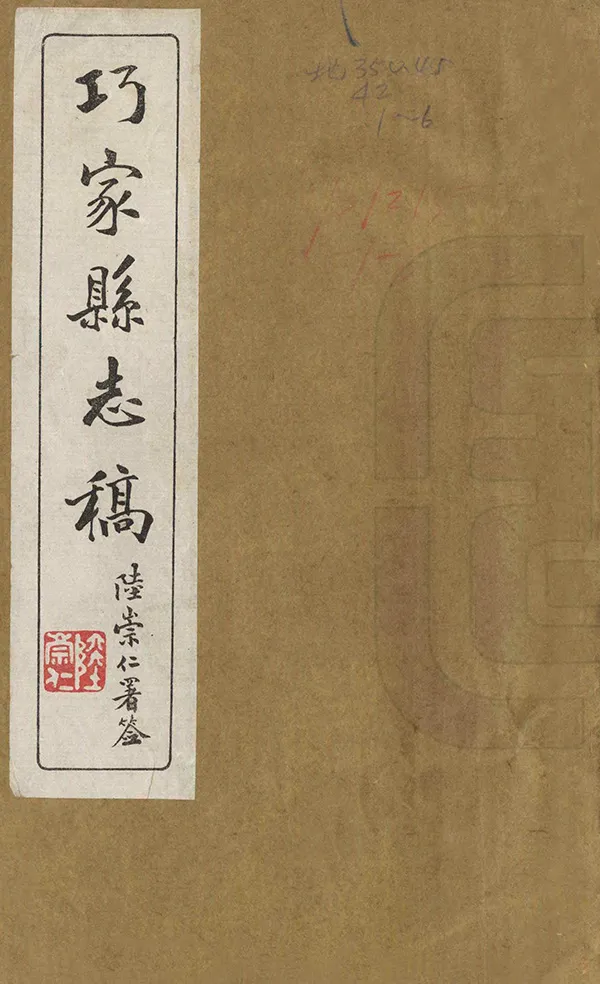 巧家縣志稿
陸崇仁署签
陸崇仁
地350.45
42
1~6